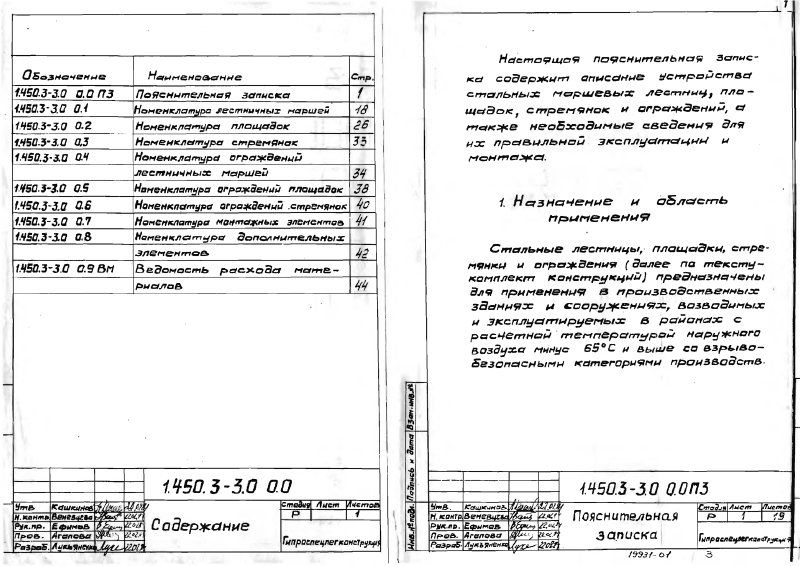 Обозначение Наименование Стр.
1.450.3-3.0 0.0 ПЗ Пояснительная записка 1
1.450.3-3.0 0.1 Номенклатура лестничных маршей 18
1.450.3-3.0 0.2 Номенклатура площадок 26
1.450.3-3.0 0.3 Номенклатура стремянок 33
1.450.3-3.0 0.4 Номенклатура ограждений
лестничных маршей 34
1.450.3-3.0 0.5 Номенклатура ограждений площадок 38
1.450.3-3.0 0.6 Номенклатура ограждений стремянок 40
1.450.3-3.0 0.7 Номенклатура монтажных элементов 41
1.450.3-3.0 0.8 Номенклатура дополнительных
элементов 42
1.450.3-3.0 0.9 ВМ Ведомость расхода мате-
риалов 44
1.450.3-3.0 0.0
Утв Кашкинов
Н.контр. Веневцева
Рук.пр. Ефимов
Пров. Агапова
Разраб. Лукьяненко
Содержание
Стадия Лист Листов
Р 1
Гипроспецлегконструкция
1
Настоящая пояснительная запис-
ка содержит описание устройства
стальных маршевых лестниц, пло-
щадок, стремянок и ограждений, а
также необходимые сведения для
их правильной эксплуатации и
монтажа.
1. Назначение и область
применения
Стальные лестницы, площадки, стре-
мянки и ограждения (далее по тексту-
комплект конструкций) предназначены
для применения в производственных
зданиях и сооружениях, возводимых
и эксплуатируемых в районах с
расчетной температурой наружного
воздуха минус 65°С и выше со взрыво-
безопасными категориями производств.
Взам.инв.№
Подпись и дата
Инв.№подл.
1.450.3-3.0 0.0ПЗ
Утв. Кашкинов
Н.контр. Веневцева
Рук.пр. Ефимов
Пров. Агапова
Разраб. Лукьяненко
Пояснительная
записка
Стадия Лист Листов
Р 1 19
Гипроспецлегконструкция
19931-01 3